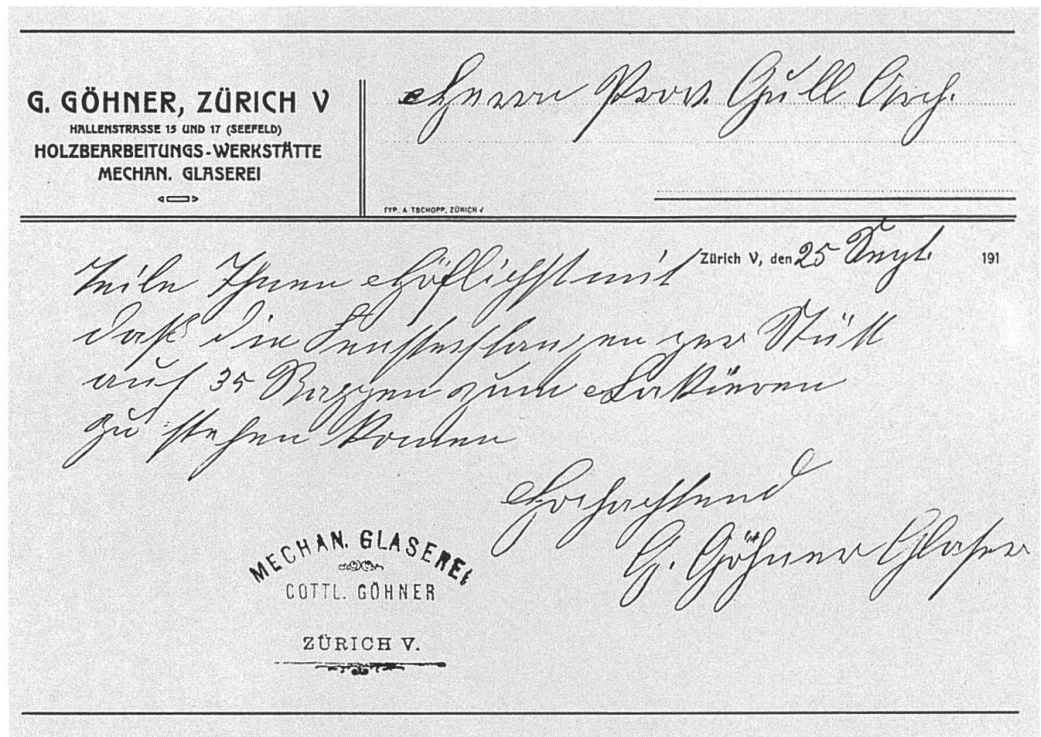 G. GÖHNER, ZÜRICH V
HALLENSTRASSE 15 UND 17 (SEEFELD)
HOLZBEARBEITUNGS-WERKSTÄTTE
MECHAN. GLASEREI
Herrn Prof. Gull Arch.
TYP. A. TSCHOPP, ZÜRICH V
Zürich V, den 25 Sept. 191
Teile Ihnen Höflichst mit
daß die Fensterstangen per Stük
auf 35 Rappen zum Lakieren
zu stehen komen
Hochachtend
G. Göhner Glaser
MECHAN. GLASEREI
GOTTL. GÖHNER
ZÜRICH V.